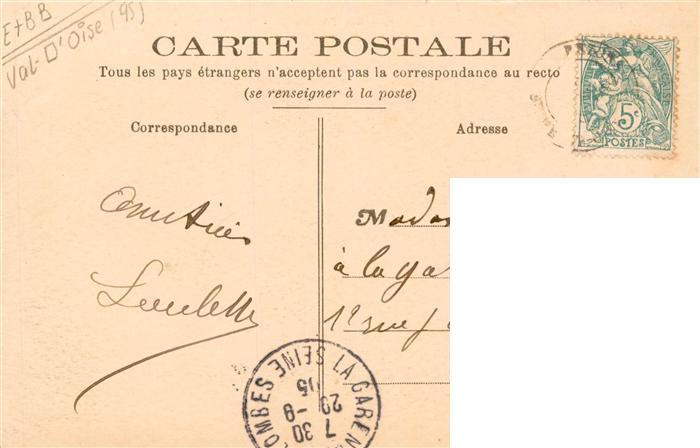 E+BB
Val-D'Oise (95)
CARTE POSTALE
Tous les pays étrangers n'acceptent pas la correspondance au recto
(se renseigner à la poste)
Correspondance
Adresse
5c
POSTES
Amitiés
Madam
à la Ga
1 rue
LA GAREN
OMBES SEINE
7 30
29 -9
05